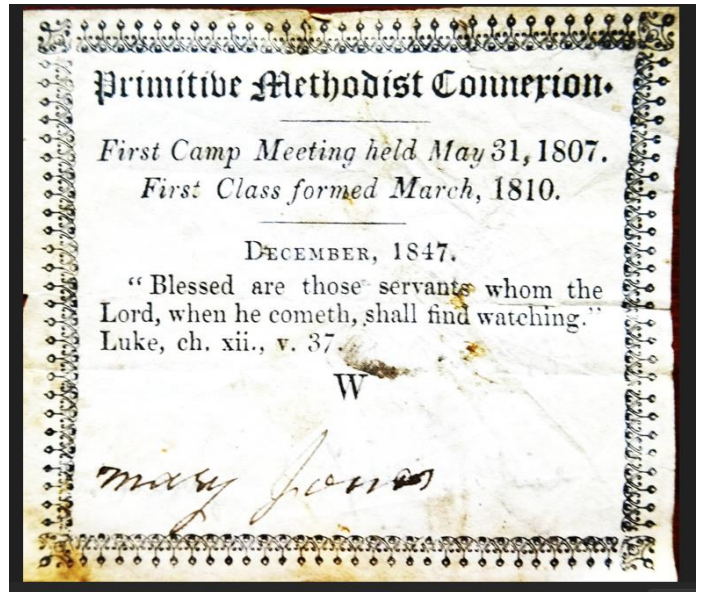 Primitive Methodist Connexion.
First Camp Meeting held May 31, 1807.
First Class formed March, 1810.
DECEMBER, 1847.
“Blessed are those servants whom the
Lord, when he cometh, shall find watching.”
Luke, ch. xii., v. 37.
W
mary Jones